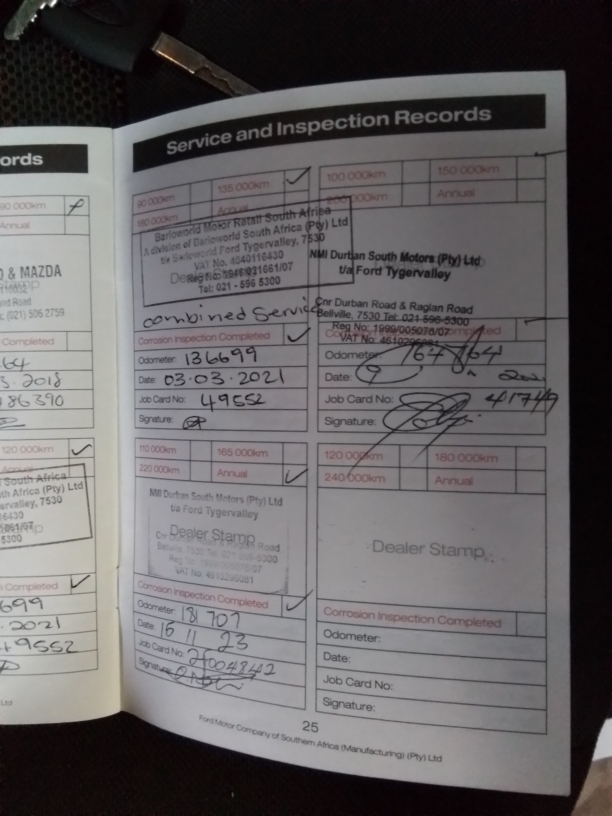 ords
90 000km
Annual
O & MAZDA
(021) 506 2759
Completed
64
3.2018
186390
120 000km
Annual
South Africa
uth Africa (Pty) Ltd
ervalley, 7530
5300
Completed
699
.2021
49552
Ltd
Service and Inspection Records
90 000km
135 000km
180 000km
Annual
Barloworld Motor Retail South Africa
A division of Barloworld South Africa (Pty) Ltd
t/a Barloworld Ford Tygervalley, 7530
VAT No. 4640116430
Reg No: 1946/021661/07
Tel: 021 - 596 5300
combined Service
Corrosion Inspection Completed
Odometer: 136699
Date: 03.03.2021
Job Card No: 49552
Signature:
100 000km
150 000km
200 000km
Annual
NMI Durban South Motors (Pty) Ltd
t/a Ford Tygervalley
Cnr Durban Road & Raglan Road
Bellville, 7530 Tel: 021 596-5300
Reg No: 1999/005078/07
VAT No: 4610296081
Corrosion Inspection Completed
Odometer:
Date:
Job Card No: 41749
Signature:
110 000km
165 000km
220 000km
Annual
NMI Durban South Motors (Pty) Ltd
t/a Ford Tygervalley
Dealer Stamp
Cnr Durban Road & Raglan Road
Bellville, 7530 Tel: 021 596-5300
VAT No: 4610296081
Corrosion Inspection Completed
Odometer: 181 707
Date: 15 11 23
Job Card No:
Signature:
120 000km
180 000km
240 000km
Annual
Dealer Stamp
Corrosion Inspection Completed
Odometer:
Date:
Job Card No:
Signature:
25
Ford Motor Company of Southern Africa (Manufacturing) (Pty) Ltd